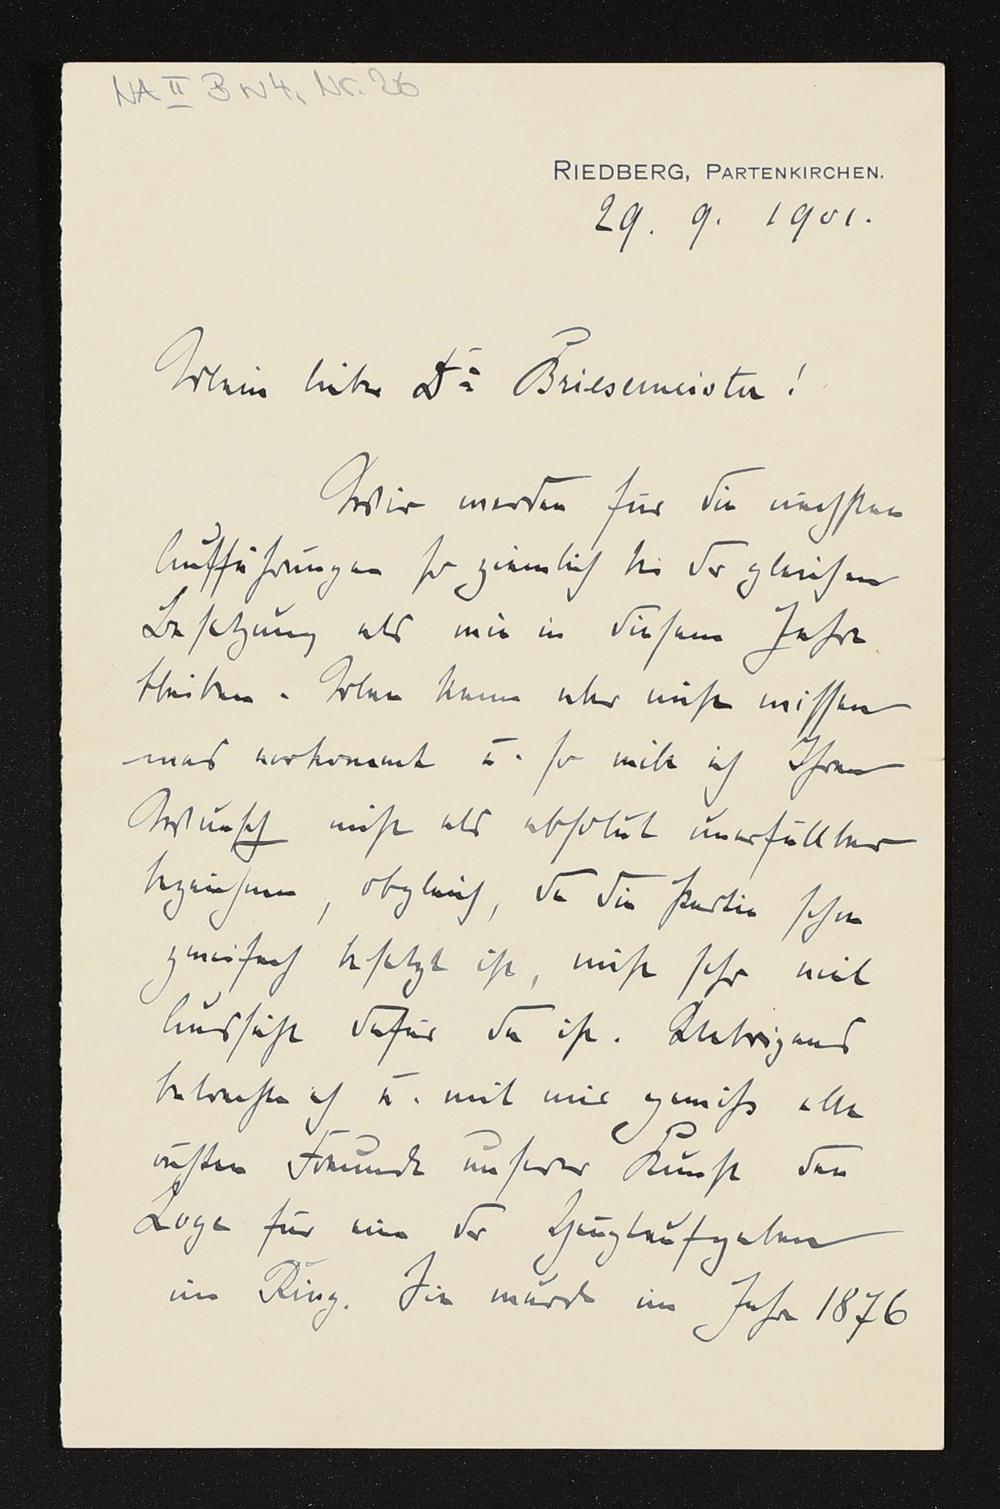 NA II B w 4, Nr. 26
RIEDBERG, PARTENKIRCHEN.
29. 9. 1901.
Mein lieber Dr Briesemeister!
Wir werden für die nächsten
Aufführungen so ziemlich bei der gleichen
Besetzung als wie in diesem Jahre
bleiben. Man kann aber nicht wissen
was vorkommt u. so will ich Ihren
Wunsch nicht als absolut unerfüllbar
bezeichnen, obgleich, da die Partie schon
zweifach besetzt ist, nicht sehr viel
Aussicht dafür da ist. Uebrigens
betrachte ich u. mit mir gewiss alle
ächten Freunde unserer Kunst den
Loge für eine der Hauptaufgaben
im Ring. Sie wurde im Jahre 1876